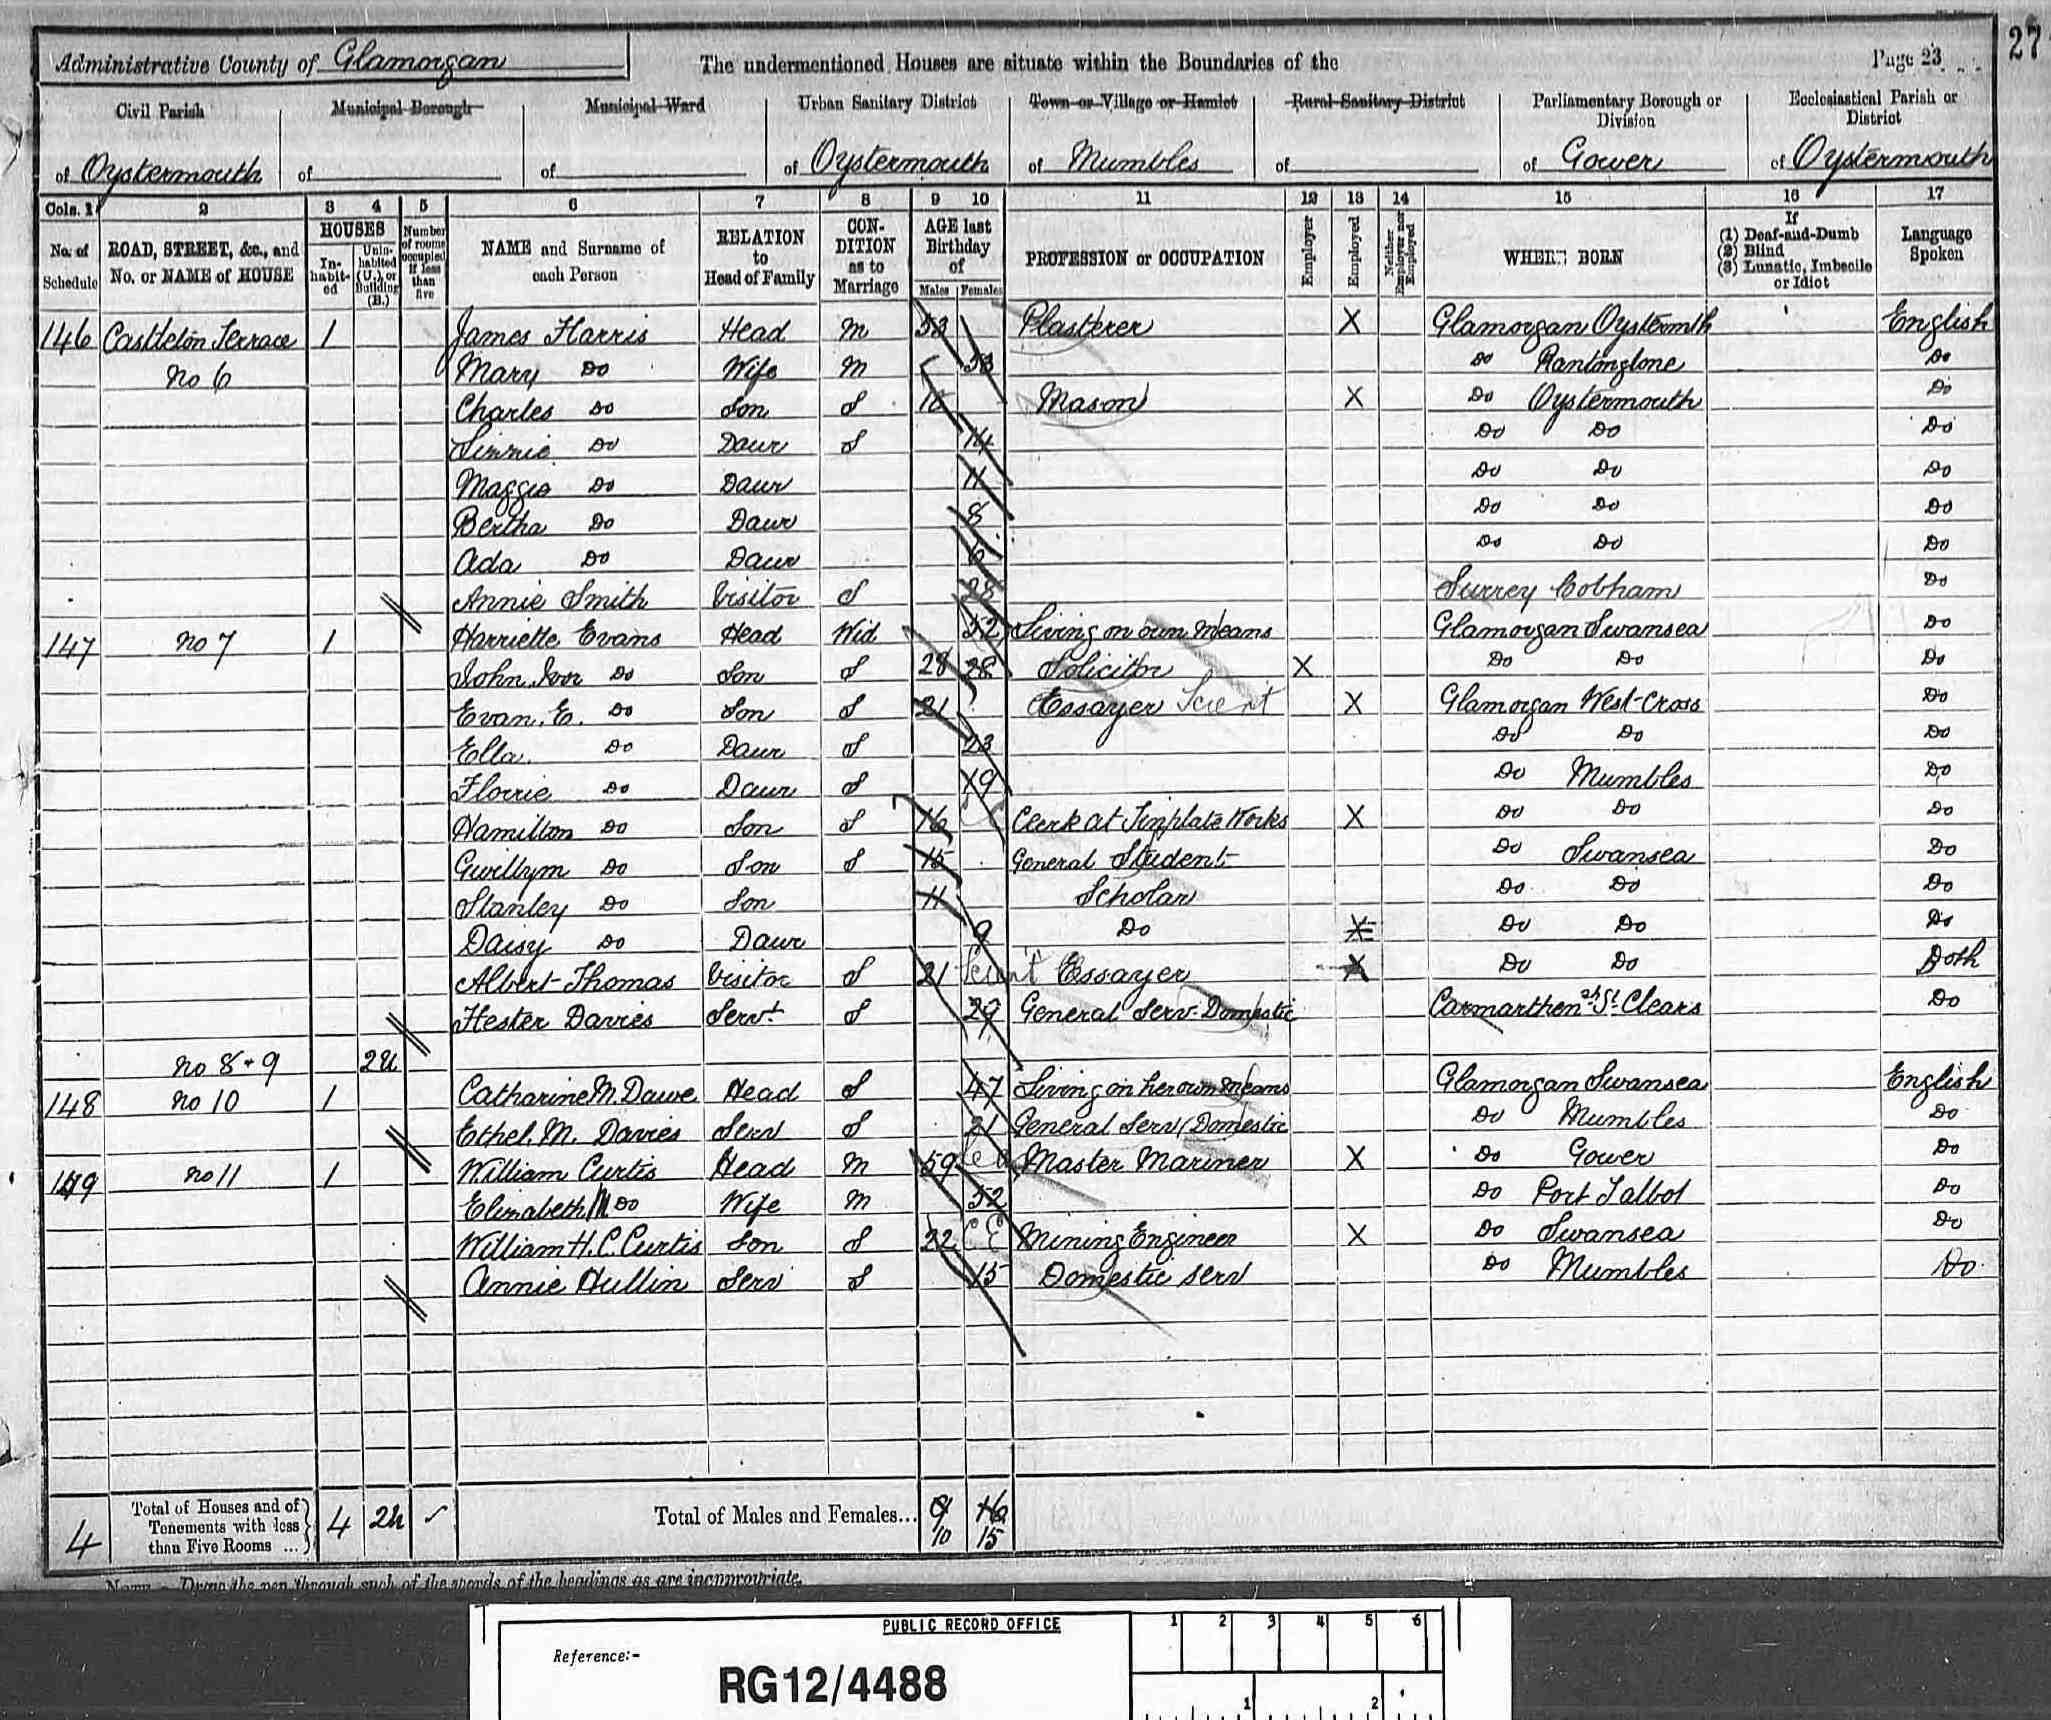 Administrative County of Glamorgan The undermentioned Houses are situate within the Boundaries of the Page 23 27
Civil Parish Municipal Borough Municipal Ward Urban Sanitary District Town or Village or Hamlet Rural Sanitary District Parliamentary Borough or Division Ecclesiastical Parish or District
of Oystermouth of of of Oystermouth of Mumbles of of Gower of Oystermouth
Cols. 1 2 3 4 5 6 7 8 9 10 11 12 13 14 15 16 17
No. of Schedule ROAD, STREET, &c., and No. or NAME of HOUSE HOUSES Inhabited Uninhabited (U.), or Building (B.) Number of rooms occupied if less than five NAME and Surname of each Person RELATION to Head of Family CONDITION as to Marriage AGE last Birthday of Males Females PROFESSION or OCCUPATION Employer Employed Neither Employer nor Employed WHERE BORN If (1) Deaf-and-Dumb (2) Blind (3) Lunatic, Imbecile or Idiot Language Spoken
146 Castleton Terrace 1 James Harris Head M 53 Plasterer X Glamorgan Oystermth English
No 6 Mary Do Wife M 53 Do Do
Charles Do Son S Mason X Do Oystermouth Do
Do Daur S 14 Do Do Do
Maggie Do Daur 11 Do Do Do
Bertha Do Daur 8 Do Do Do
Ada Do Daur 6 Do Do Do
Annie Smith Visitor S 28 Surrey Cobham Do
147 No 7 1 Harriette Evans Head Wid 52 Living on own Means Glamorgan Swansea Do
John Ivor Do Son S 28 28 Solicitor X Do Do Do
Evan. E. Do Son S 21 Essayer Scient X Glamorgan West-Cross Do
Ella Do Daur S 23 Do Do Do
Florrie Do Daur S 19 Do Mumbles Do
Hamilton Do Son S 16 Clerk at Tinplate Works X Do Do Do
Gwillym Do Son S 15 General Student Do Swansea Do
Stanley Do Son 11 Scholar Do Do Do
Daisy Do Daur 9 Do X Do Do Do
Albert Thomas Visitor S 21 Scient Essayer X Do Do Both
Hester Davies Servt S 29 General Serv. Domestic Carmarthen St Clears Do
No 8 + 9 2U
148 No 10 1 Catharine M. Dawe Head S 47 Living on her own Means Glamorgan Swansea English
Ethel. M. Davies Serv S 21 General Serv (Domestic Do Mumbles Do
149 No 11 1 William Curtis Head M 59 Master Mariner X Do Gower Do
Elizabeth M Do Wife M 52 Do Port Talbot Do
William H. C. Curtis Son S 22 C E Mining Engineer X Do Swansea Do
Annie Hullin Serv S 15 Domestic Serv Do Mumbles Do
4 Total of Houses and of Tenements with less than Five Rooms ... 4 2U Total of Males and Females... 9 16
10 15
NOTE.—Draw the pen through such of the words of the headings as are inappropriate.
PUBLIC RECORD OFFICE 1 2 3 4 5 6
Reference:-
RG12/4488
1 2